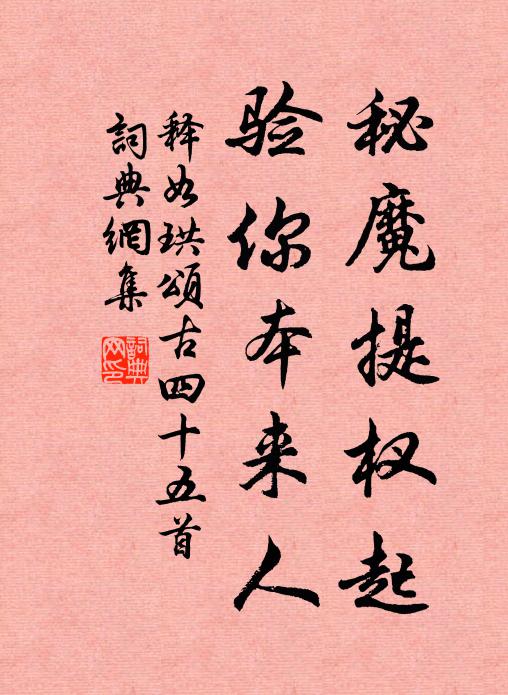 秘魔提杈起
验你本来人
释如珙頌古四十五首
詞典網集
詞典网印